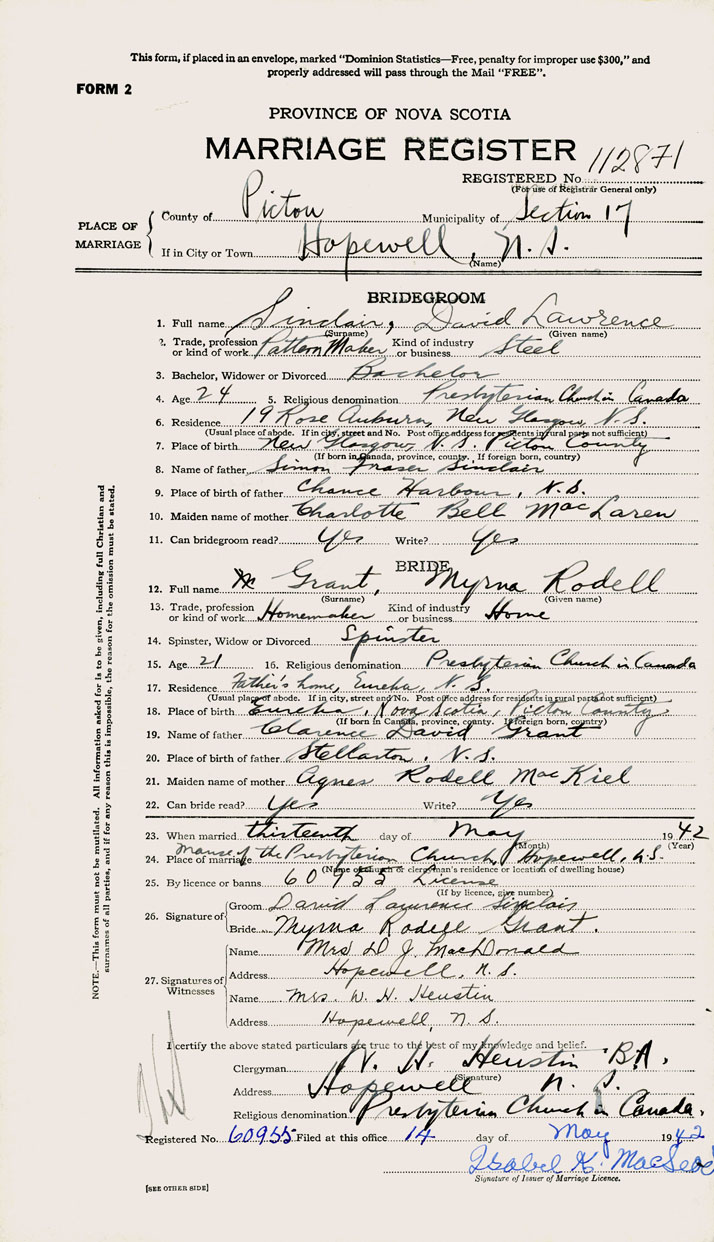 This form, if placed in an envelope, marked "Dominion Statistics—Free, penalty for improper use $300," and
properly addressed will pass through the Mail "FREE".
FORM 2
PROVINCE OF NOVA SCOTIA
MARRIAGE REGISTER
REGISTERED No. 112871
(For use of Registrar General only)
PLACE OF MARRIAGE
County of Pictou Municipality of Section 17
If in City or Town Hopewell, N.S.
(Name)
BRIDEGROOM
1. Full name Sinclair, David Lawrence
(Surname) (Given name)
2. Trade, profession or kind of work Pattern Maker Kind of industry or business Steel
3. Bachelor, Widower or Divorced Bachelor
4. Age 24 5. Religious denomination Presbyterian Church in Canada
6. Residence 19 Rose Auburn, New Glasgow, N.S.
(Usual place of abode. If in city, street and No. Post office address for residents in rural parts not sufficient)
7. Place of birth New Glasgow, N.S. Pictou County
(If born in Canada, province, county. If foreign born, country)
8. Name of father Simon Fraser Sinclair
9. Place of birth of father Chance Harbour, N.S.
10. Maiden name of mother Charlotte Bell MacLaren
11. Can bridegroom read? Yes Write? Yes
BRIDE
12. Full name Grant, Myrna Rodell
(Surname) (Given name)
13. Trade, profession or kind of work Homemaker Kind of industry or business Home
14. Spinster, Widow or Divorced Spinster
15. Age 21 16. Religious denomination Presbyterian Church in Canada
17. Residence Father's home, Eureka, N.S.
(Usual place of abode. If in city, street and No. Post office address for residents in rural parts not sufficient)
18. Place of birth Eureka, Nova Scotia, Pictou County.
(If born in Canada, province, county. If foreign born, country)
19. Name of father Clarence David Grant
20. Place of birth of father Stellarton, N.S.
21. Maiden name of mother Agnes Rodell MacKiel
22. Can bride read? Yes Write? Yes
23. When married thirteenth day of May 1942
(Month) (Year)
24. Place of marriage Manse of the Presbyterian Church, Hopewell, N.S.
(Name of church or clergyman's residence or location of dwelling house)
25. By licence or banns 60955 License
(If by licence, give number)
26. Signature of
Groom David Lawrence Sinclair
Bride Myrna Rodell Grant.
27. Signatures of Witnesses
Name Mrs D J MacDonald
Address Hopewell, N.S.
Name Mrs. W. H. Heustin
Address Hopewell, N.S.
I certify the above stated particulars are true to the best of my knowledge and belief.
Clergyman W. H. Heustin B.A.
(Signature)
Address Hopewell N.S.
Religious denomination Presbyterian Church in Canada.
Registered No. 60955 Filed at this office 14 day of May 1942
Isabel K.
Signature of Issuer of Marriage Licence.
[SEE OTHER SIDE]
NOTE.—This form must not be mutilated. All information asked for is to be given, including full Christian and
surnames of all parties, and if for any reason this is impossible, the reason for the omission must be stated.